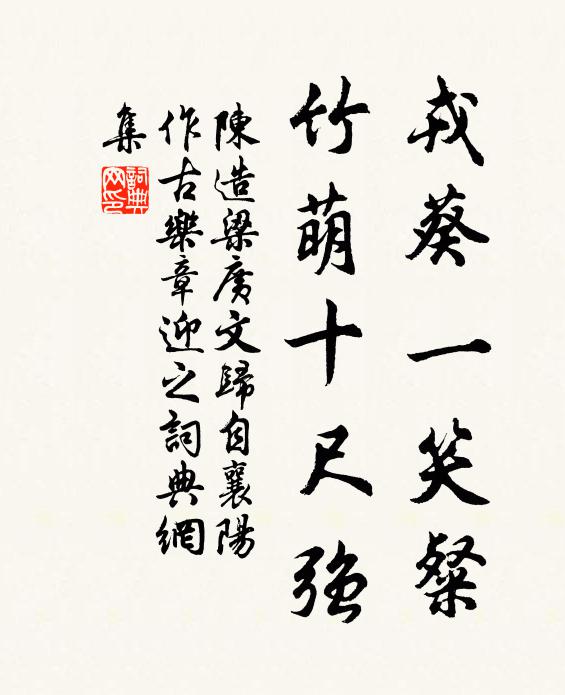 戎葵一笑粲
竹萌十尺強
陳造梁廣文歸自襄陽
作古樂章迎之詞典網
集
詞典网印